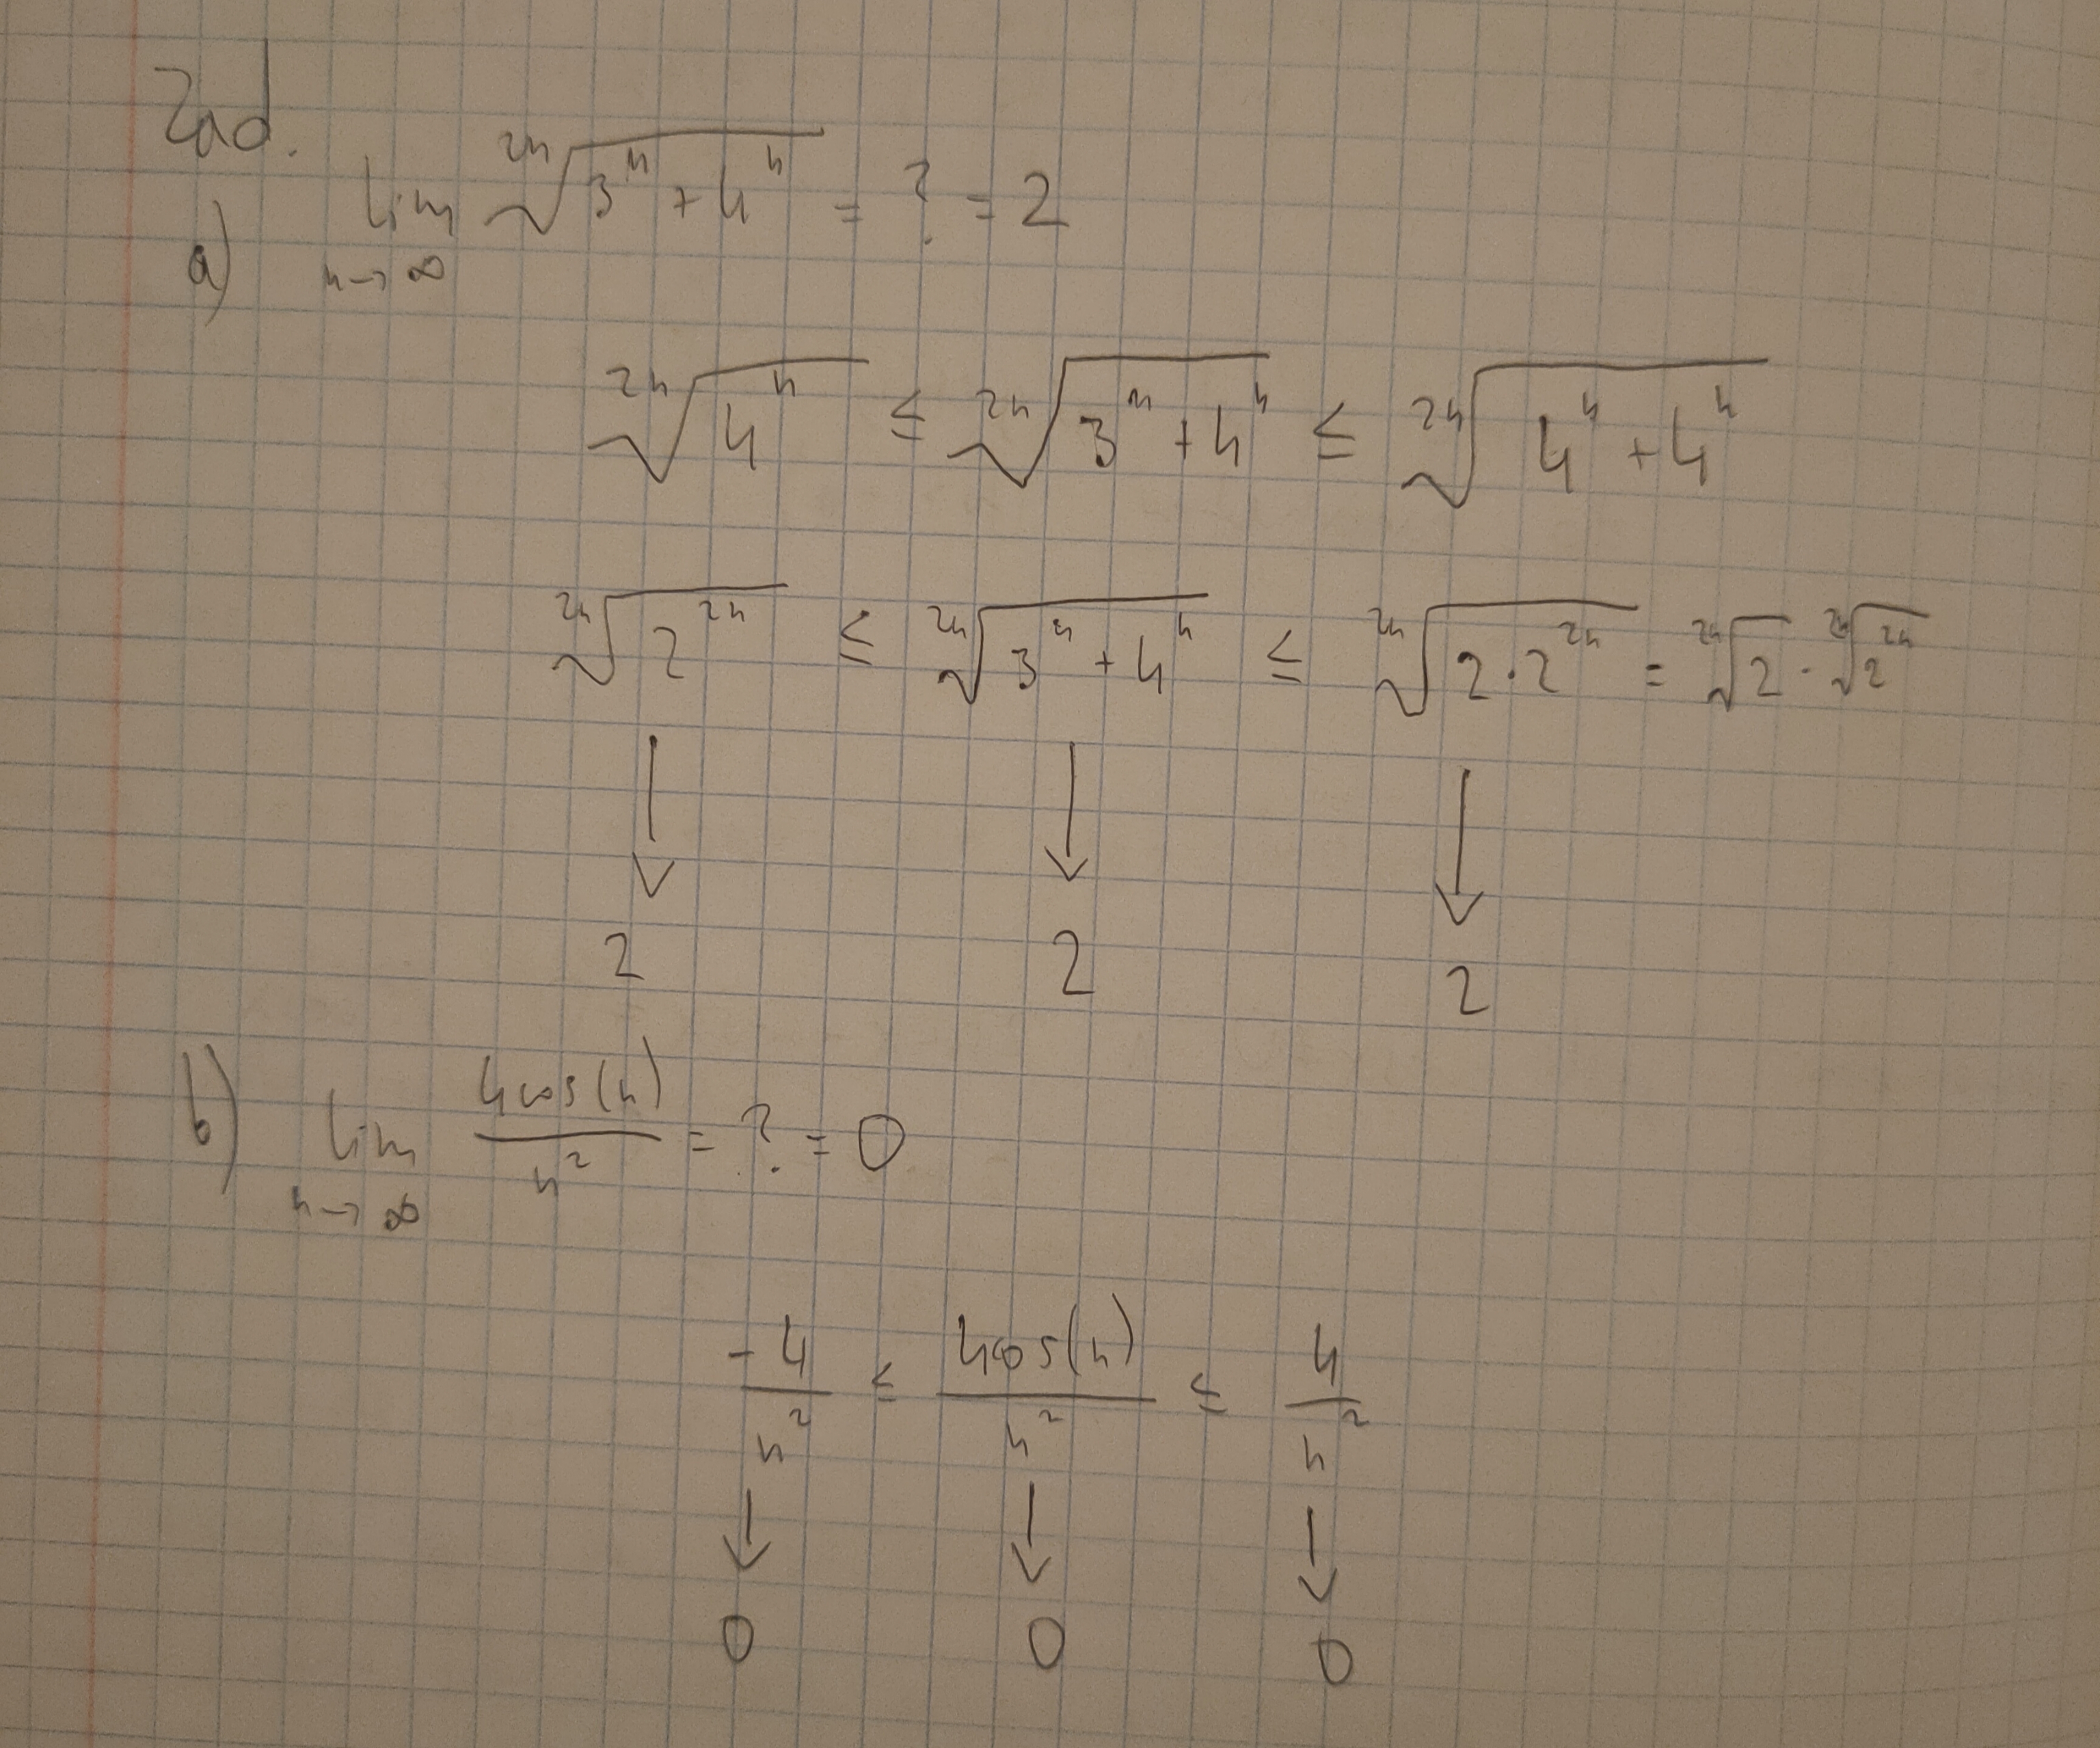 Zad.
a) lim n→∞ ²ⁿ√(3ⁿ + 4ⁿ) = ? = 2
²ⁿ√(4ⁿ) ≤ ²ⁿ√(3ⁿ + 4ⁿ) ≤ ²ⁿ√(4ⁿ + 4ⁿ)
²ⁿ√(2²ⁿ) ≤ ²ⁿ√(3ⁿ + 4ⁿ) ≤ ²ⁿ√(2·2²ⁿ) = ²ⁿ√2 · ²ⁿ√(2²ⁿ)
↓ ↓ ↓
2 2 2
b) lim n→∞ 4cos(n)/n² = ? = 0
-4/n² ≤ 4cos(n)/n² ≤ 4/n²
↓ ↓ ↓
0 0 0